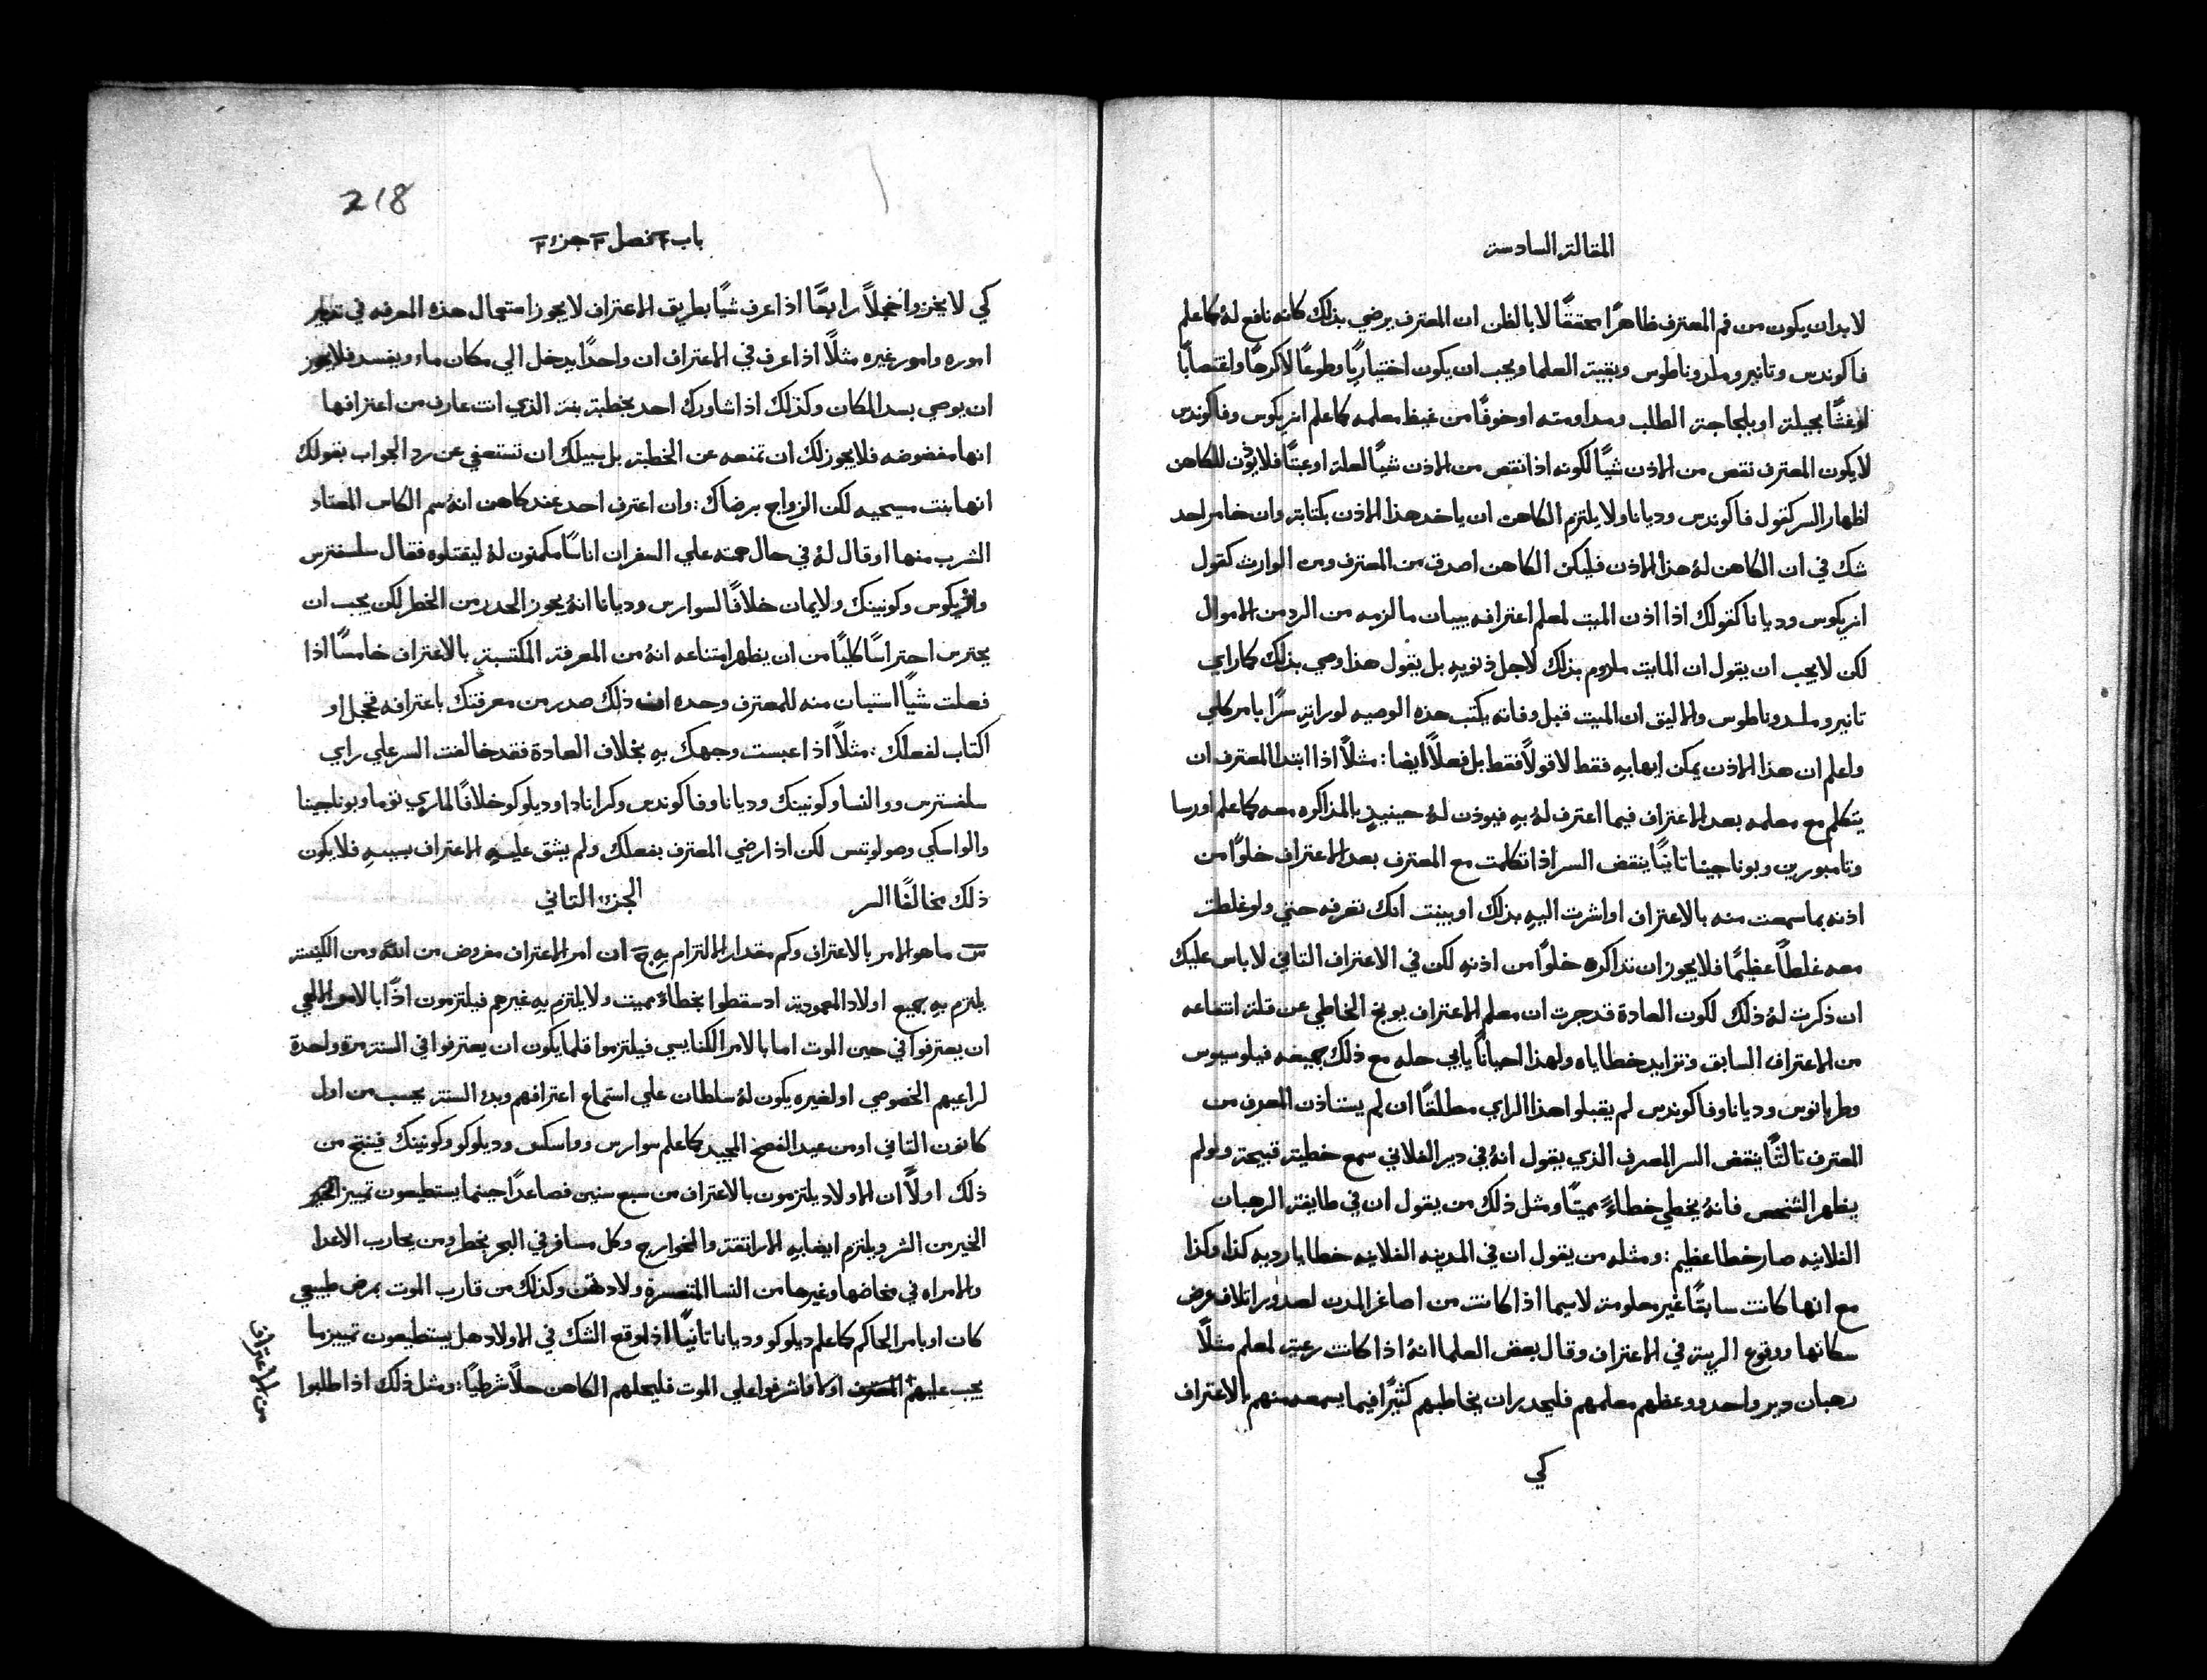 المقالة السادسة
لا بد ان يكون من فم المعترف ظاهرًا محققًا لا بالظن ان المعترف يرضي بذلك كانه نافع لهُ كما علم
فاكوندس وتانير وملدوناطوس وبقية العلما ويجب ان يكون اختياريًا وطوعًا لا كرهًا واغتصابًا
او غشًا بحيلة او بلجاجة الطلب ومداومته او خوفًا من غيظ معلمه كما علم انريكوس وفاكوندس
لا يكون المعترف نقص من الاذن شيًا لكونه اذا نقص من الاذن شيًا لعلة او عبثًا فلا يوذن للكاهن
اظهار السر كقول فاكوندس وديانا ولا يلتزم الكاهن ان ياخد هذا الاذن بكتابة وان خامر احد
شك في ان الكاهن لهُ هذا الاذن فليكن الكاهن اصدق من المعترف ومن الوارث كقول
انريكوس وديانا كقولك اذا اذن الميت لمعلم اعترافه ببيان ما لزمه من الرد من الاموال
لكن لا يجب ان يقول ان المايت ملزوم بذلك لاجل ذنوبهِ بل يقول هذا وصي بذلك كما راي
تانير وملدوناطوس والاليق ان الميت قبل وفاته يكتب هذه الوصيه لوراثهِ سرًا بامر كلي
واعلم ان هذا الاذن يمكن ايهابهِ فقط لا قولاً فقط بل فعلاً ايضا: مثلاً اذا ابتدا المعترف ان
يتكلم مع معلمه بعد الاعتراف فيما اعترف لهُ بهِ فيوذن لهُ حينيذٍ بالمذاكره معه كما علم اورسا
وتامبورين وبوناجينا تانيًا ينقض السر اذا تكلمت مع المعترف بعد الاعتراف خلوًا من
اذنه بما سمعت منه بالاعتراف او اشرت اليهِ بذلك او بينت انك تعرفه حتي ولو غلطت
معه غلطاً عظيمًا فلا يجوز ان تذاكره خلوًا من اذنهِ لكن في الاعتراف التاني لا باس عليك
ان ذكرت لهُ ذلك لكون العادة قد جرت ان معلم الاعتراف يوبخ الخاطي عن قلة انتفاعه
من الاعتراف السابق وتزايد خطاياه ولهذا احيانًا يابي حله مع ذلك جميعه فيلوسيوس
وطربانوس وديانا وفاكوندس لم يقبلوا هذا الراي مطلقًا ان لم يستاذن المعرف من
المعترف تالثًا ينقض السر المعرف الذي يقول انهُ في دير الفلاني سمع خطية قبيحة ولو لم
يظهر الشخص فانهُ يخطي خطاءً مميتًا ومثل ذلك من يقول ان في طايفة الرهبان
الفلانيه صار خطا عظيم: ومثله من يقول ان في المدينه الفلانيه خطايا رديه كذا وكذا
مع انها كانت سابقًا غير معلومة لا سيما اذا كانت من اصاغر المدن لصدور اتلاف عرض
سكانها ووقوع الريبة في الاعتراف وقال بعض العلما انهُ اذا كانت رعية لمعلم مثلاً
رهبان دير واحد ووعظهم معلمهم فليحدر ان يخاطبهم كثيرًا فيما يسمعه منهم بالاعتراف
كي
218
باب ٢ فصل ٣ جزء ٢
كي لا يخزوا خجلاً رابعًا اذا عرف شيًا بطريق الاعتراف لا يجوز استعمال هذه المعرفه في تدبير
اموره وامور غيره مثلًا اذا عرف في الاعتراف ان واحدًا يدخل الي مكان ماء ويفسد فلا يجوز
ان يوصي بسد المكان وكذلك اذا شاورك احد بخطبة بنت الذي انت عارف من اعترافها
انها مفضوضه فلا يجوز لك ان تمنعه عن الخطبة بل سبيلك ان تستعفي عن رد الجواب بقولك
انها بنت مسيحيه لكن الزواج برضاك: وان اعترف احد عند كاهن انهُ سم الكاس المعتاد
الشرب منها او قال لهُ في حال همته علي السفر ان اناسًا مكمنون لهُ ليقتلوه فقال سلسفترس
وانريكوس وكونينك ولايمان خلافًا لسوارس وديانا انهُ يجوز الحدر من الخطر لكن يجب ان
يحترس احتراسًا كليًا من ان يظهر امتناعه انهُ من المعرفة المكتسبة بالاعتراف خامسًا اذا
فعلت شيًا استبان منه للمعترف وحده ان ذلك صدر من معرفتك باعترافه فخجل او
اكتاب لفعلك: مثلاً اذا عبست وجهك بهِ بخلاف العادة فقد خالفت السر علي راي
سلفسترس ووالنسا وكونينك وديانا وفاكوندس وكرانادا وديلوكو خلافًا لماري توما وبوناجينا
والواسكي وصولوتس لكن اذا رضي المعترف بفعلك ولم يشق عليهِ الاعتراف بسببهِ فلا يكون
ذلك مخالفًا السر الجزء التاني
س ما هو الامر بالاعتراف وكم مقدار الالتزام بهِ ج ان امر الاعتراف مفروض من الله ومن الكنيسة
يلتزم بهِ جميع اولاد المعمودية اد سقطوا بخطاءٍ مميت ولا يلتزم بهِ غيرهم فيلتزمون اذًا بالامر الالهي
ان يعترفوا في حين الموت اما بالامر الكنايسي فيلتزموا قلما يكون ان يعترفوا في السنة مرة واحدة
لراعيهم الخصوصي او لغيره يكون لهُ سلطان علي استماع اعترافهم وبدء السنة يحسب من اول
كانون التاني او من عيد الفصح المجيد كما علم سوارس وواسكس وديلوكو وكونينك فينتج من
ذلك اولاً ان الاولاد يلتزمون بالاعتراف من سبع سنين فصاعدًا حينما يستطيعون تمييز
الخير من الشر ويلتزم ايضا بهِ الاراتقة والخوارج وكل مسافر في البحر بخطر ومن يحارب الاعدا
والامراه في مخاضها وغيرها من النسا المتعسرة ولادتهن وكذلك من قارب الموت بمرض طبيعي
كان او بامر الحاكم كما علم ديلوكو وديانا تانيًا اذا وقع الشك في الاولاد هل يستطيعون تمييز ما
يجب عليهم او لا فاشرفوا علي الموت فليحلهم الكاهن حلاً شرطيًا: ومثل ذلك اذا طلبوا
من الاعتراف